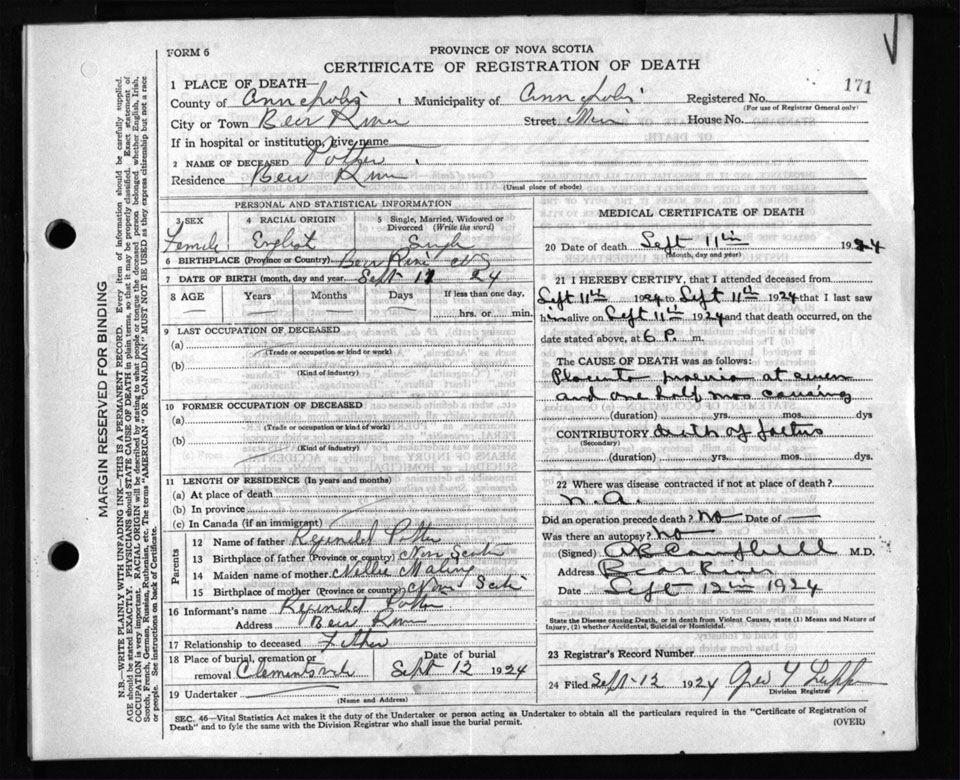 FORM 6
PROVINCE OF NOVA SCOTIA
CERTIFICATE OF REGISTRATION OF DEATH
171
1 PLACE OF DEATH—
County of Annapolis Municipality of Annapolis Registered No.
(For use of Registrar General only)
City or Town Bear River Street Main House No.
If in hospital or institution, give name
2 NAME OF DECEASED Potter
Residence Bear River
(Usual place of abode)
PERSONAL AND STATISTICAL INFORMATION
3 SEX 4 RACIAL ORIGIN 5 Single, Married, Widowed or Divorced (Write the word)
Female English Single
6 BIRTHPLACE (Province or Country) Bear River NS
7 DATE OF BIRTH (month, day and year) Sept 11 24
8 AGE Years Months Days If less than one day,
hrs. or min.
9 LAST OCCUPATION OF DECEASED
(a)
(Trade or occupation or kind or work)
(b)
(Kind of industry)
10 FORMER OCCUPATION OF DECEASED
(a)
(Trade or occupation or kind of work)
(b)
(Kind of industry)
11 LENGTH OF RESIDENCE (In years and months)
(a) At place of death
(b) In province
(c) In Canada (if an immigrant)
Parents
12 Name of father Reginald Potter
13 Birthplace of father (Province or country) Nova Scotia
14 Maiden name of mother Nellie
15 Birthplace of mother (Province or country) Nova Scotia
16 Informant's name Reginald Potter
Address Bear River
17 Relationship to deceased Father
18 Place of burial, cremation or removal Clementsvale Date of burial Sept 12 1924
19 Undertaker
(Name and Address)
MEDICAL CERTIFICATE OF DEATH
20 Date of death Sept 11th 1924
(Month, day and year)
21 I HEREBY CERTIFY, that I attended deceased from
Sept 11th 1924 to Sept 11th 1924 that I last saw
h alive on Sept 11th 1924 and that death occurred, on
date stated above, at 6 P. m.
The CAUSE OF DEATH was as follows:
Placenta praevia at seven
and one half mos causing
(duration) yrs. mos. dys
CONTRIBUTORY death of foetus
(Secondary)
(duration) yrs. mos. dys.
22 Where was disease contracted if not at place of death?
N.A.
Did an operation precede death? No Date of —
Was there an autopsy? No
(Signed) Campbell M.D.
Address Bear River
Date Sept 12th 1924
State the Disease causing Death, or in death from Violent Causes, state (1) Means and Nature of
Injury, (2) whether Accidental, Suicidal or Homicidal.
23 Registrar's Record Number
24 Filed Sept-12 1924 Geo
Division Registrar
SEC. 46—Vital Statistics Act makes it the duty of the Undertaker or person acting as Undertaker to obtain all the particulars required in the "Certificate of Registration of
Death" and to fyle the same with the Division Registrar who shall issue the burial permit.
(OVER)
MARGIN RESERVED FOR BINDING
N.B.—WRITE PLAINLY WITH UNFADING INK—THIS IS A PERMANENT RECORD. Every item of information should be carefully supplied.
AGE should be stated EXACTLY. PHYSICIANS should STATE CAUSE OF DEATH in plain terms, so that it may be properly classified. Exact statement of
OCCUPATION is very important. RACIAL ORIGIN will be described by stating to what people or tongue the deceased person belonged, whether English, Irish,
Scotch, French, German, Russian, Ruthenian, etc. The terms "AMERICAN" OR "CANADIAN" MUST NOT BE USED as they express citizenship but not a race
or people. See instructions on back of Certificate.